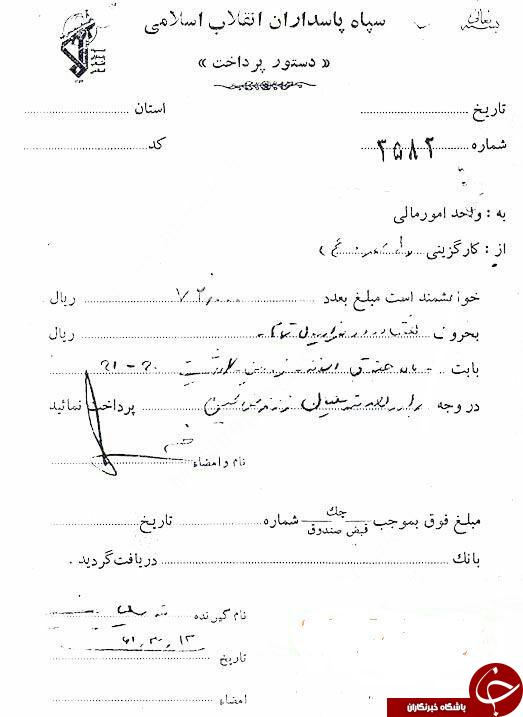 بسمه تعالی
سپاه پاسداران انقلاب اسلامی
« دستور پرداخت »
تاریخ استان
شماره ۳۵۸۲ کد
به : واحد امورمالی
از : کارگزینی
خواهشمند است مبلغ بعدد ۷۲٫۰۰۰ ریال
بحروف هفتاد و دو هزار ریال تمام ریال
بابت حقوق اسفند ۶۰ - ۶۱
در وجه برادر پرداخت نمائید
نام و امضاء
مبلغ فوق بموجب چك / قبض صندوق شماره تاریخ
بانك دریافت گردید .
نام گیرنده
تاریخ
امضاء
باشگاه خبرنگاران